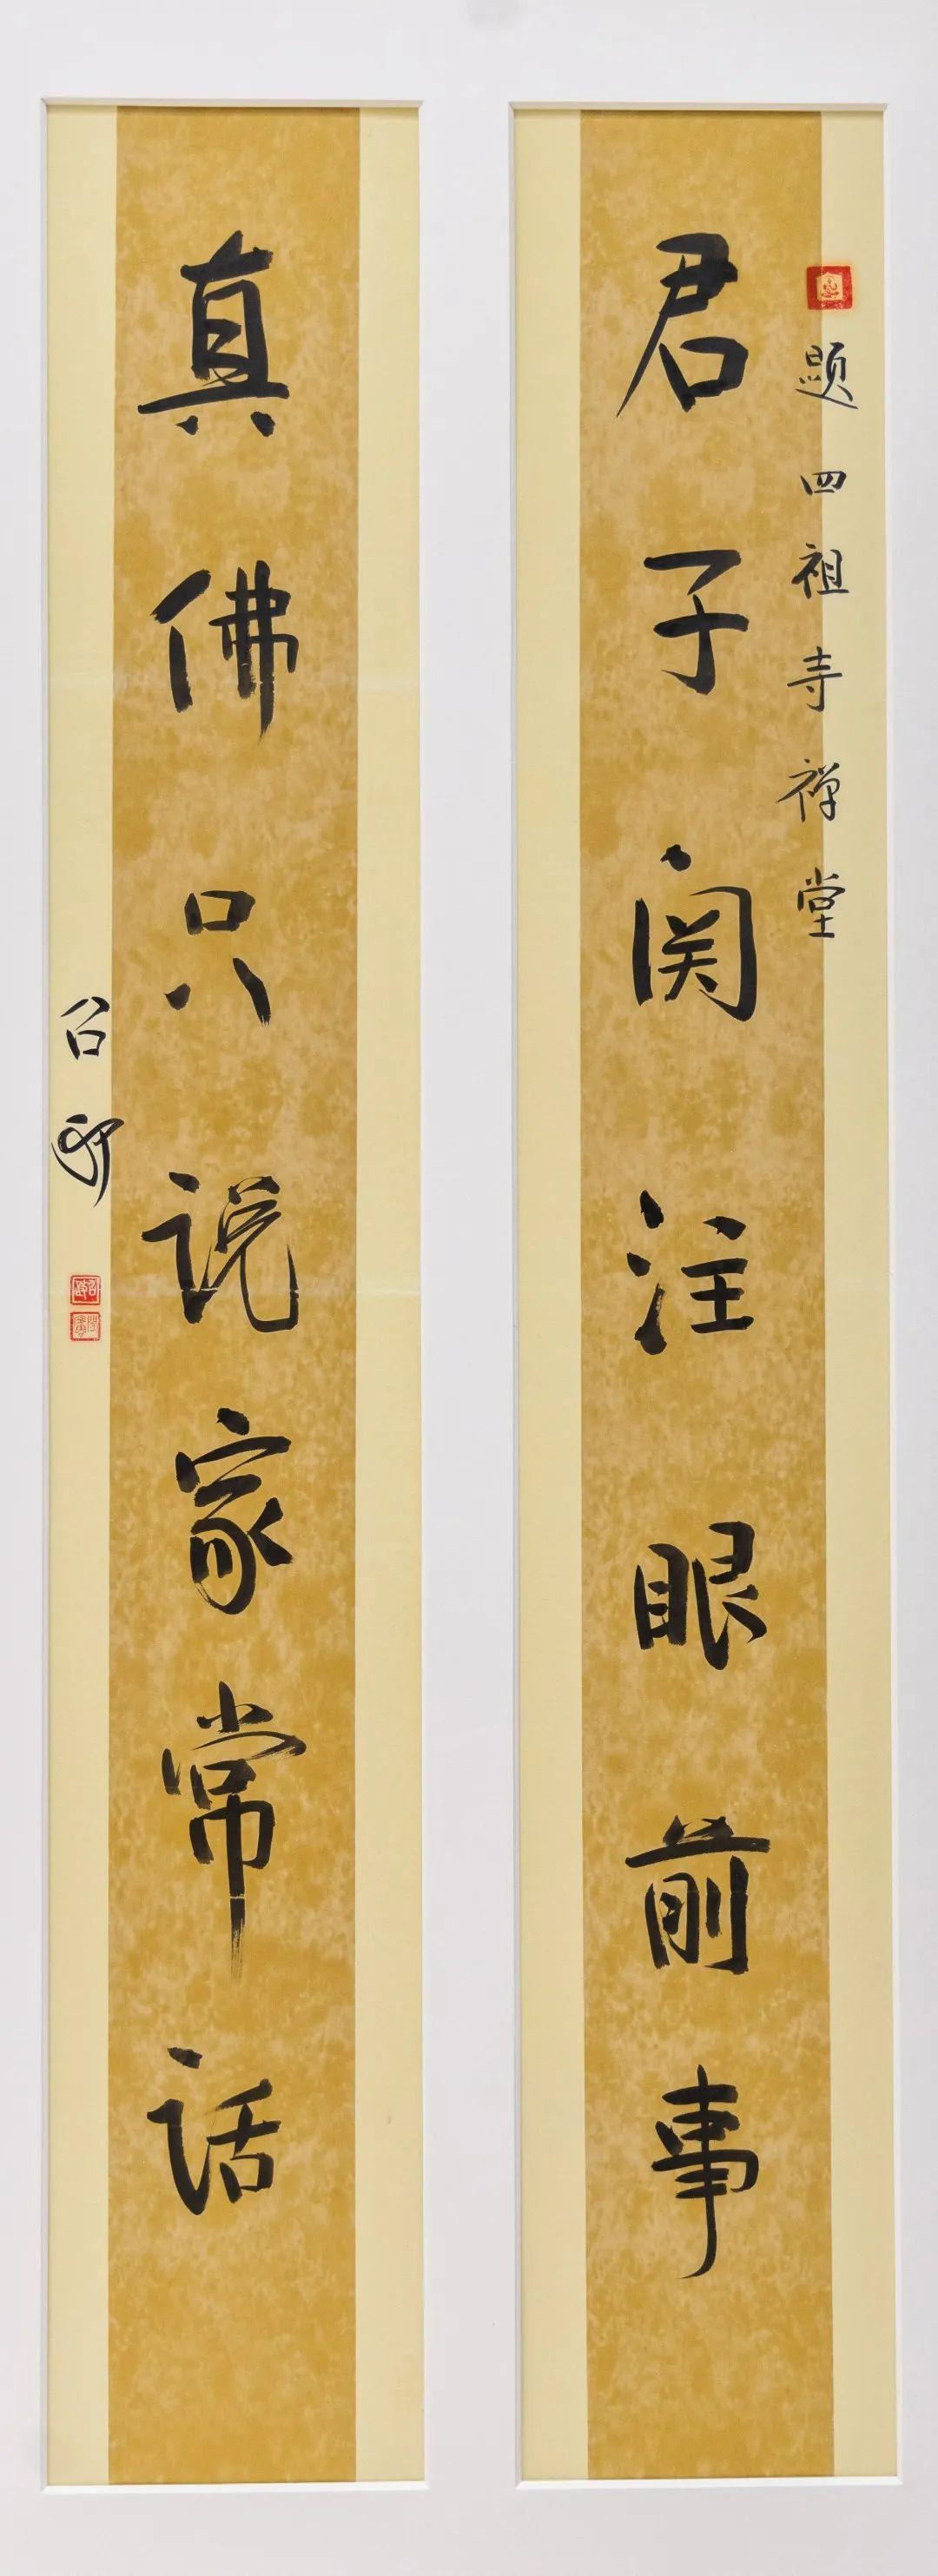 题四祖寺禅堂
君子关注眼前事
真佛只说家常话